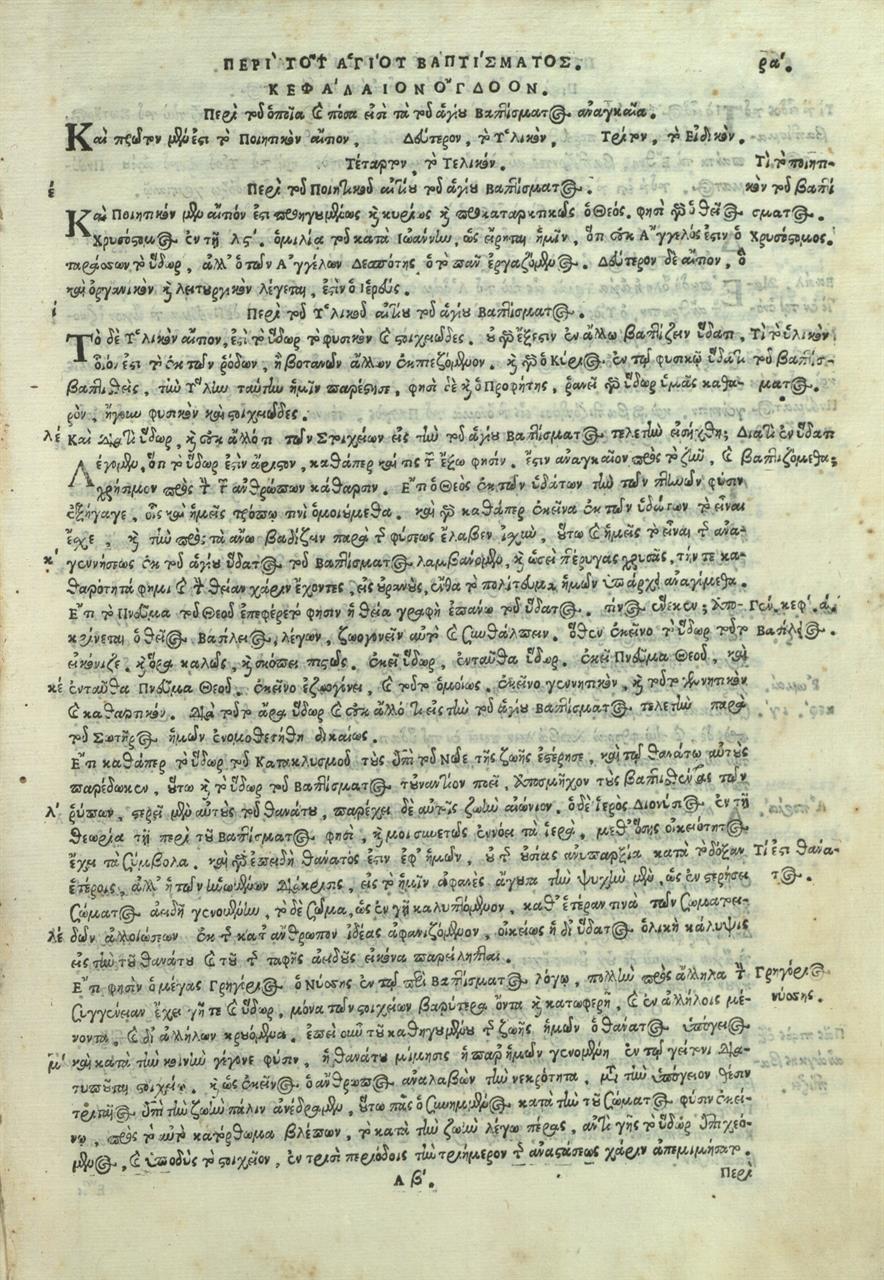 ΠΕΡΙ ΤΟΥ ἉΓΙΟΥ ΒΑΠΤΙΣΜΑΤΟΣ. ρα΄.
ΚΕΦΑΛΑΙΟΝ ΟΓΔΟΟΝ.
Περὶ τοῦ ὁποῖα καὶ πόσα εἰσὶ τὰ τοῦ ἁγίου Βαπτίσματος ἀναγκαῖα.
Καὶ πρῶτον μὲν ἔστι τὸ Ποιητικὸν αἴτιον, Δεύτερον, τὸ Ὑλικὸν, Τρίτον, τὸ Εἰδικὸν.
Τέταρτον, τὸ Τελικόν. Τί τὸ ποιητι-
ε Περὶ τοῦ Ποιητικοῦ αἰτίου τοῦ ἁγίου Βαπτίσματος. κὸν τοῦ βαπτί
Καὶ Ποιητικὸν μὲν αἴτιόν ἐστι προηγουμένως καὶ κυρίως καὶ προκαταρκτικῶς ὁ Θεός. φησὶ γὰρ ὁ θεῖος σματος.
Χρυσόστομος ἐν τῇ λς΄. ὁμιλίᾳ τοῦ κατὰ Ἰωάννην, ὡς εἴρηται ἡμῖν, ὅτι οὐκ Ἄγγελός ἐστιν ὁ Χρυσόστομος.
ταράσσων τὸ ὕδωρ, ἀλλ' ὁ τῶν Ἀγγέλων Δεσπότης ὁ τὸ πᾶν ἐργαζόμενος. Δεύτερον δὲ αἴτιον, ὃ
καὶ ὀργανικὸν καὶ λειτουργικὸν λέγεται, ἐστὶν ὁ Ἱερεύς.
ι Περὶ τοῦ Ὑλικοῦ αἰτίου τοῦ ἁγίου Βαπτίσματος.
Τὸ δὲ Ὑλικὸν αἴτιον, ἐστὶ τὸ ὕδωρ τὸ φυσικὸν καὶ στοιχειῶδες. οὐ γὰρ ἔξεστιν ἐν ἄλλῳ βαπτίζειν ὕδατι, Τί τὸ ὑλικὸν
οἷόν ἐστι τὸ ἐκ τῶν ῥόδων, ἢ βοτανῶν ἄλλων ἐκπιεζόμενον. καὶ γὰρ ὁ Κύριος ἐν τῷ φυσικῷ ὕδατι τοῦ βαπτίσ-
βαπτισθεὶς, τὴν ὕλην ταύτην ἡμῖν παρέστησε, φησὶ δὲ καὶ ὁ Προφήτης, ῥανεῖ γὰρ ὕδωρ ὑμᾶς καθα- ματος.
ρὸν, ἤγουν φυσικὸν καὶ στοιχειῶδες.
ιε Καὶ διατί ὕδωρ, καὶ οὐκ ἄλλό τι τῶν Στοιχείων εἰς τὴν τοῦ ἁγίου Βαπτίσματος τελετὴν εἰσήχθη; Διατί ἐν ὕδατι
Λέγομεν, ὅτι τὸ ὕδωρ ἐστὶν ἄριστον, καθάπερ καί τις τῶν ἔξω φησίν. ἔστιν ἀναγκαῖον πρὸς τὸ ζῆν, καὶ βαπτιζόμεθα;
χρήσιμον πρὸς τὴν τῶν ἀνθρώπων κάθαρσιν. Ἔτι ὁ Θεὸς ἐκ τῶν ὑδάτων τὴν τῶν πτηνῶν φύσιν
ἐξήγαγε, οἷς καὶ ἡμεῖς τρόπῳ τινὶ ὁμοιούμεθα. καὶ γὰρ καθάπερ ἐκεῖνα ἐκ τῶν ὑδάτων τὸ εἶναι
ἔσχε, καὶ τὴν πρὸς τὰ ἄνω βαδίζειν παρὰ τῆς φύσεως ἔλαβεν ἰσχὺν, οὕτω καὶ ἡμεῖς τὸ εἶναι τῆς ἀνα-
κ΄ γεννήσεως ἐκ τοῦ ἁγίου ὕδατος τοῦ Βαπτίσματος λαμβάνομεν, καὶ ὡσεὶ πτέρυγας χρυσᾶς, τήν τε κα-
θαρότητά φημι καὶ τὴν θείαν χάριν ἔχοντες, εἰς οὐρανοὺς, ἔνθα τὸ πολίτευμα ἡμῶν ὑπάρχει ἀναγόμεθα.
Ἔτι τὸ Πνεῦμα τοῦ Θεοῦ ἐπεφέρετό φησιν ἡ θεία γραφὴ ἐπάνω τοῦ ὕδατος. τίνος ἕνεκεν; Ἀπο- Γεν. κεφ. α΄.
κρίνεται ὁ θεῖος Βασίλειος, λέγων, ζωογονεῖν αὐτὸ καὶ συνθάλπειν. ὅθεν ἐκεῖνο τὸ ὕδωρ τοῦτο Βασίλειος.
εἰκόνιζε. καὶ ὅρα καλῶς, καὶ σκόπει πιστῶς. ἐκεῖ ὕδωρ, ἐνταῦθα ὕδωρ. ἐκεῖ Πνεῦμα Θεοῦ, καὶ
κε ἐνταῦθα Πνεῦμα Θεοῦ. ἐκεῖνο ἐζωογόνει, καὶ τοῦτο ὁμοίως. ἐκεῖνο γεννητικὸν, καὶ τοῦτο γεννητικὸν
καὶ καθαρτικόν. διὰ τοῦτο ἄρα ὕδωρ καὶ οὐκ ἄλλό τι εἰς τὴν τοῦ ἁγίου Βαπτίσματος τελετὴν παρὰ
τοῦ Σωτῆρος ἡμῶν ἐνομοθετήθη δικαίως.
Ἔτι καθάπερ τὸ ὕδωρ τοῦ Κατακλυσμοῦ τοὺς ἐπὶ τοῦ Νῶε τῆς ζωῆς ἐστέρησε, καὶ τῷ θανάτῳ αὐτοὺς
παρέδωκεν, οὕτω καὶ τὸ ὕδωρ τοῦ Βαπτίσματος τοὐναντίον ποιεῖ, ἀποσμῆχον τοὺς βαπτισθέντας τῶν
λ΄ ῥύπων, στερεῖ μὲν αὐτοὺς τοῦ θανάτου, παρέχει δὲ αὐτοῖς ζωὴν αἰώνιον. ὁ δὲ ἱερὸς Διονύσιος ἐν τῇ
θεωρίᾳ τῇ περὶ τοῦ Βαπτίσματος φησὶ, καί μοι συνετῶς ἐννόει τὰ ἱερὰ, μεθ' ὅσης οἰκειότητος
ἔχει τὰ Σύμβολα. καὶ γὰρ ἐπειδὴ θάνατός ἐστιν ἐφ' ἡμῶν, οὐ τῆς οὐσίας ἀνυπαρξία κατὰ τὸ δόξαν Τί ἐστι θάνα-
ἑτέροις, ἀλλ' ἡ τῶν ἡνωμένων διάκρισις, εἰς τὸ ἡμῖν ἀφανὲς ἄγουσα τὴν ψυχὴν μὲν, ὡς ἐν στερήσει τος.
Σώματος ἀειδῆ γενομένην, τὸ δὲ Σῶμα, ὡς ἐν γῇ καλυπτόμενον, καθ' ἑτέραν τινὰ τῶν Σωματοει-
λε δῶν ἀλλοιώσεων ἐκ τῆς κατ' ἄνθρωπον ἰδέας ἀφανιζόμενον, οἰκείως ἡ δι' ὕδατος ὁλικὴ κάλυψις
εἰς τὴν τοῦ θανάτου καὶ τοῦ τῆς ταφῆς ἀειδοῦς εἰκόνα παρείληπται.
Ἔτι φησὶν ὁ μέγας Γρηγόριος ὁ Νύσσης ἐν τῷ περὶ Βαπτίσματος λόγῳ, πολλὴν πρὸς ἄλληλα τὴν Γρηγόριος
Συγγένειαν ἔχει γῆ τε καὶ ὕδωρ, μόνα τῶν στοιχείων βαρύτερα ὄντα καὶ κατωφερῆ, καὶ ἐν ἀλλήλοις μέ- νύσσης.
νοντα, καὶ δι' ἀλλήλων κρυόμενα. ἐπεὶ οὖν τοῦ καθηγουμένου τῆς ζωῆς ἡμῶν ὁ θάνατος ὑπόγειος
μ΄ καὶ κατὰ τὴν κοινὴν γέγονε φύσιν, ἡ θανάτου μίμησις ἡ παρ' ἡμῶν γενομένη ἐν τῷ γείτονι δια-
τυποῦται στοιχείῳ. καὶ ὡς ἐκεῖνος ὁ ἄνθρωπος ἀναλαβὼν τὴν νεκρότητα, μετὰ τὴν ὑπόγειον θέσιν
τριταῖος ἐπὶ τὴν ζωὴν πάλιν ἀνέδραμεν, οὕτω πᾶς ὁ Συνημμένος κατὰ τὴν τοῦ Σώματος φύσιν ἐκεί-
νῳ, πρὸς τὸ αὐτὸ κατόρθωμα βλέπων, τὸ κατὰ τὴν ζωὴν λέγω πέρας, ἀντὶ γῆς τὸ ὕδωρ ἐπιχεό-
μενος, καὶ ὑποδὺς τὸ στοιχεῖον, ἐν τρισὶ περιόδοις τὴν τριήμερον τῆς ἀναστάσεως χάριν ἀπεμιμήσατο.
Α β΄. Περὶ